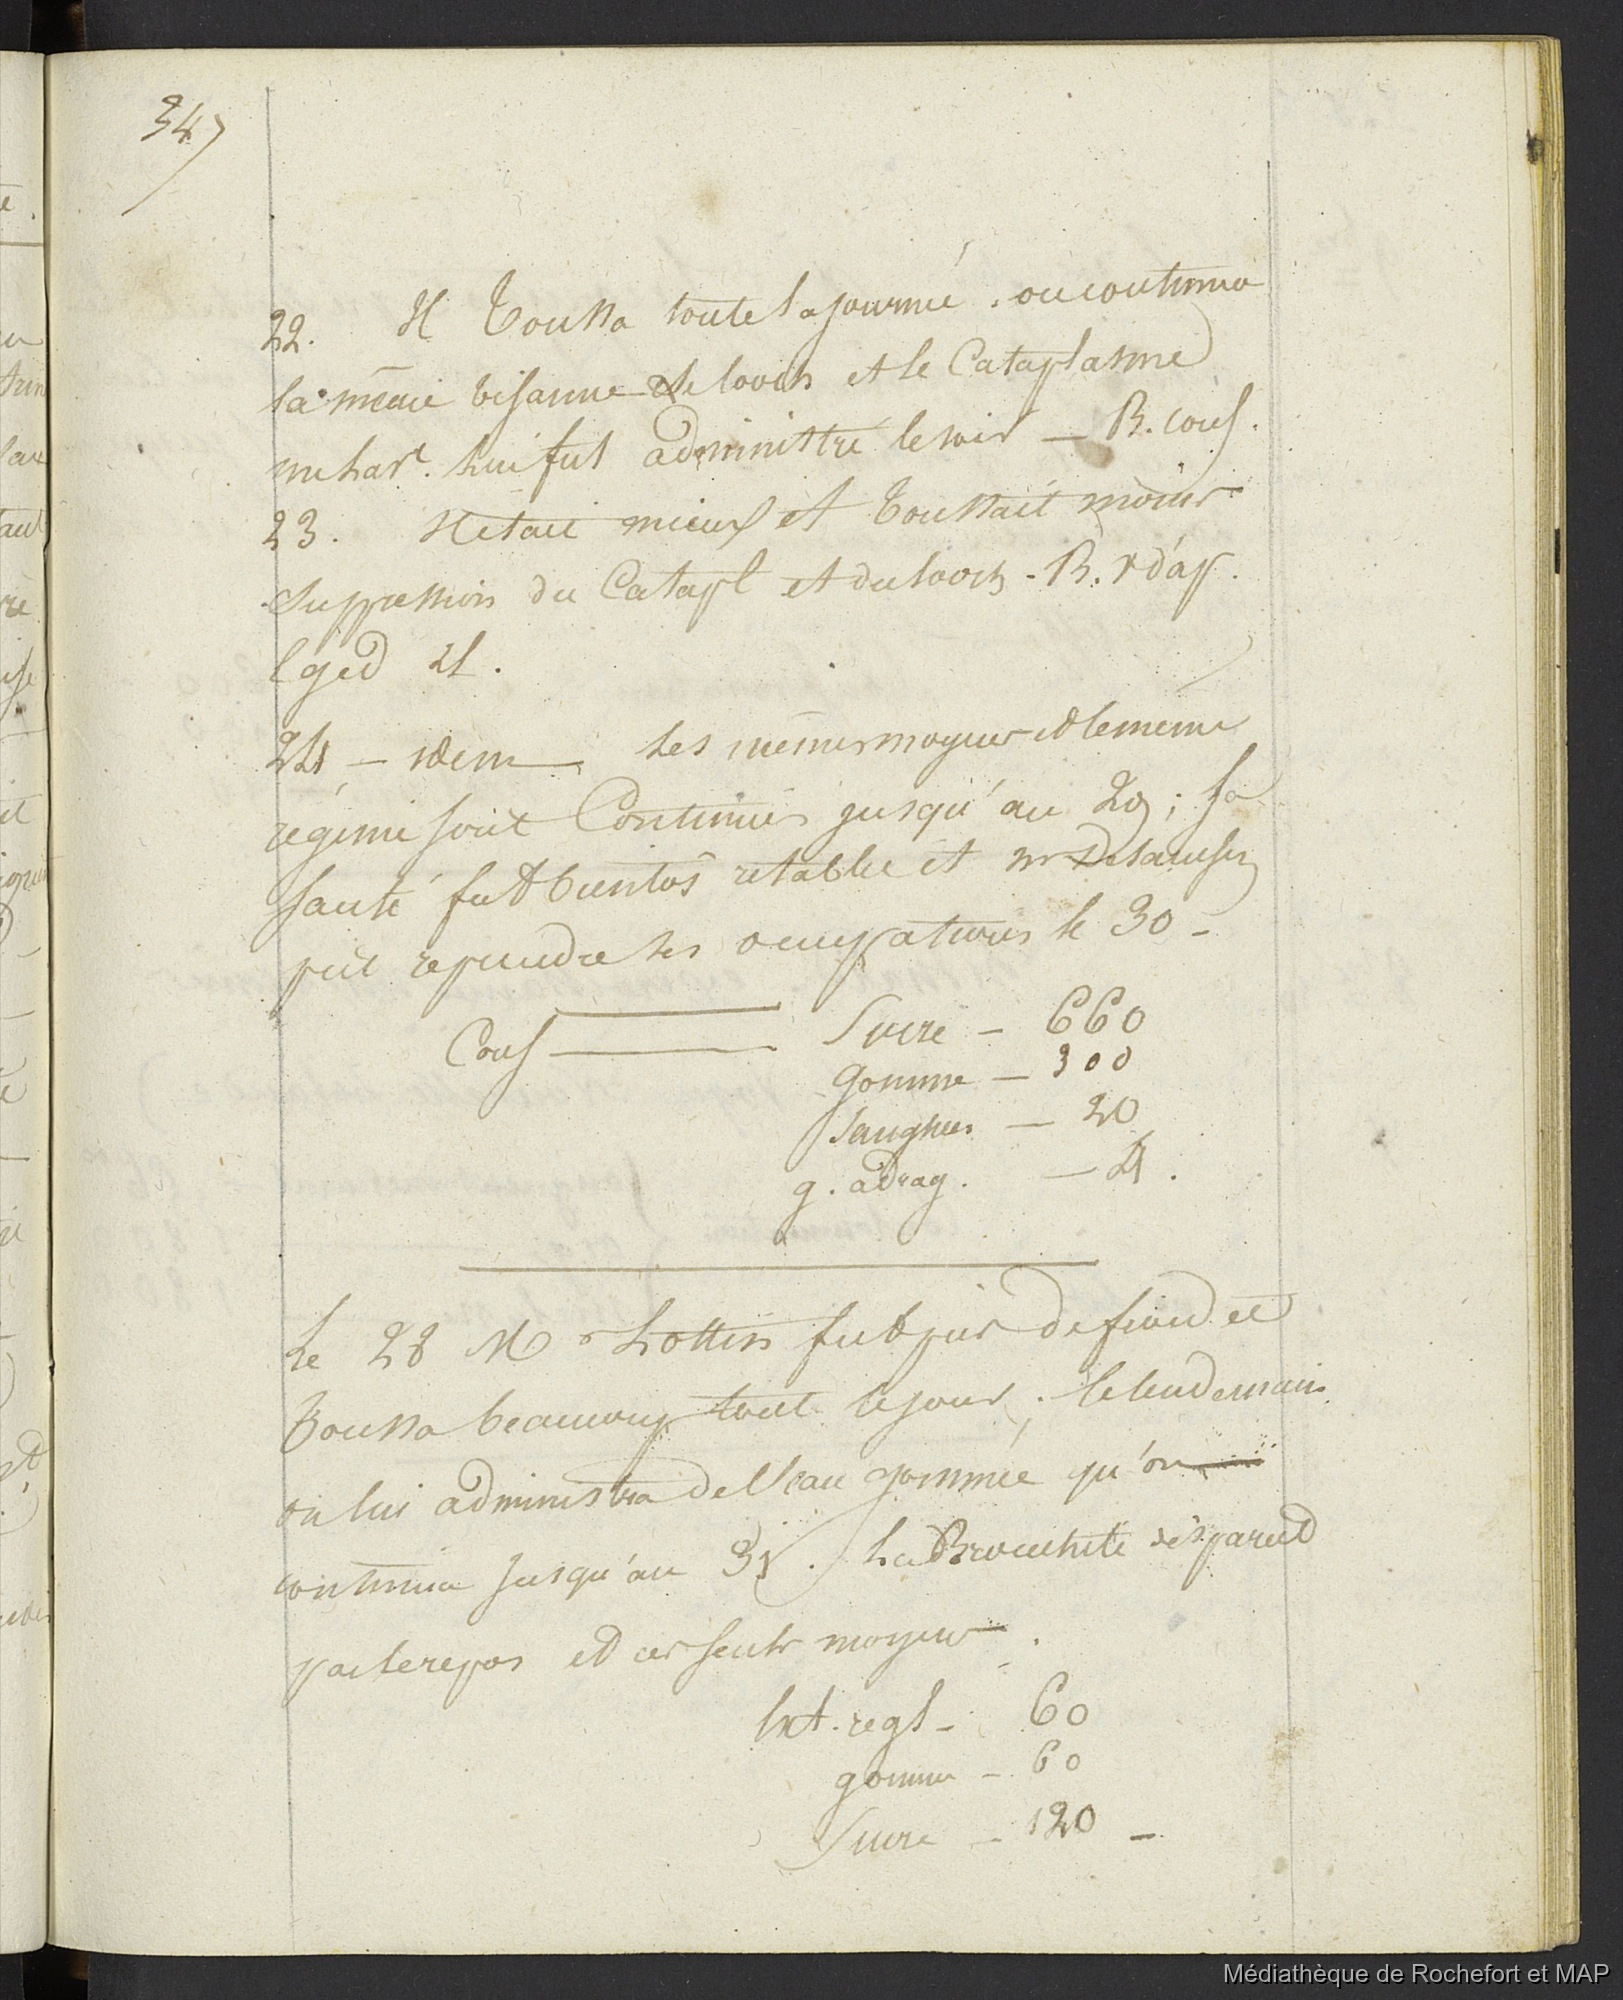 347
22. Il toussa toute la journée. on continua
la même tisanne le looch et le Cataplasme
lui fut administré le soir — B. cons.
23. Il était mieux et toussait moins
suppression du Catapl et du looch - B. r d'ap.
24 — idem — les mêmes moyens et le meme
régime sont Continués jusqu'au 29; sa
santé fut bientôt rétablie et mr
put reprendre ses occupations le 30 -
Cons — Sucre - 660
gomme — 300
sangsues — 20
g. adrag. — 4.
Le 28 Mr Lottin fut pris de froid et
toussa beaucoup tout le jour. le lendemain
on lui administra de l'eau gommée qu'on
continua jusqu'au 31. La Bronchite disparut
par le repos et ces seuls moyens.
Ext. regl - 60
gomme - 60
Sucre - 120 -
Médiathèque de Rochefort et MAP